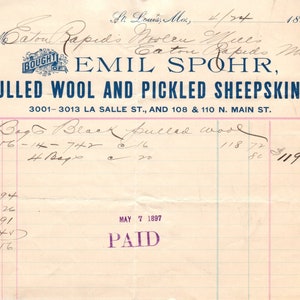 St. Louis, Mo, 4/24 18
Eaton Rapids Woolen Mills
Eaton Rapids M
BOUGHT
EMIL SPOHR,
ULLED WOOL AND PICKLED SHEEPSKIN
3001–3013 LA SALLE ST., AND 108 & 110 N. MAIN ST.
Bags Black Pulled Wool
56-14-742 c 16 118 72
4 Bags c 20 80 $119
94
26
91
45
56
MAY 7 1897
PAID